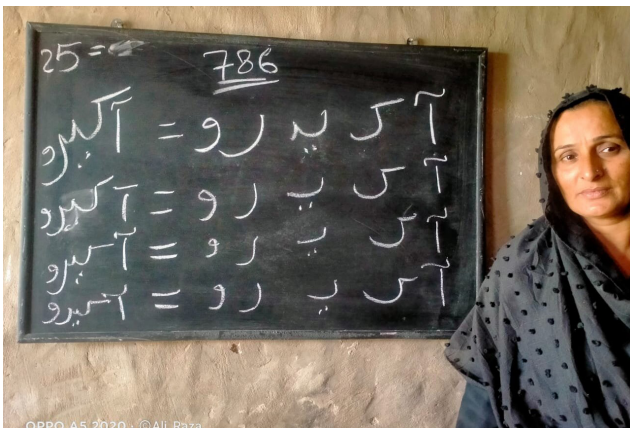 25 =
786
آ ک يـ ر و = آکيرو
آ ک يـ ر و = آکيرو
آ ک يـ ر و = آکيرو
آ ک يـ ر و = آکيرو
OPPO A5 2020 · ©Ali Raza